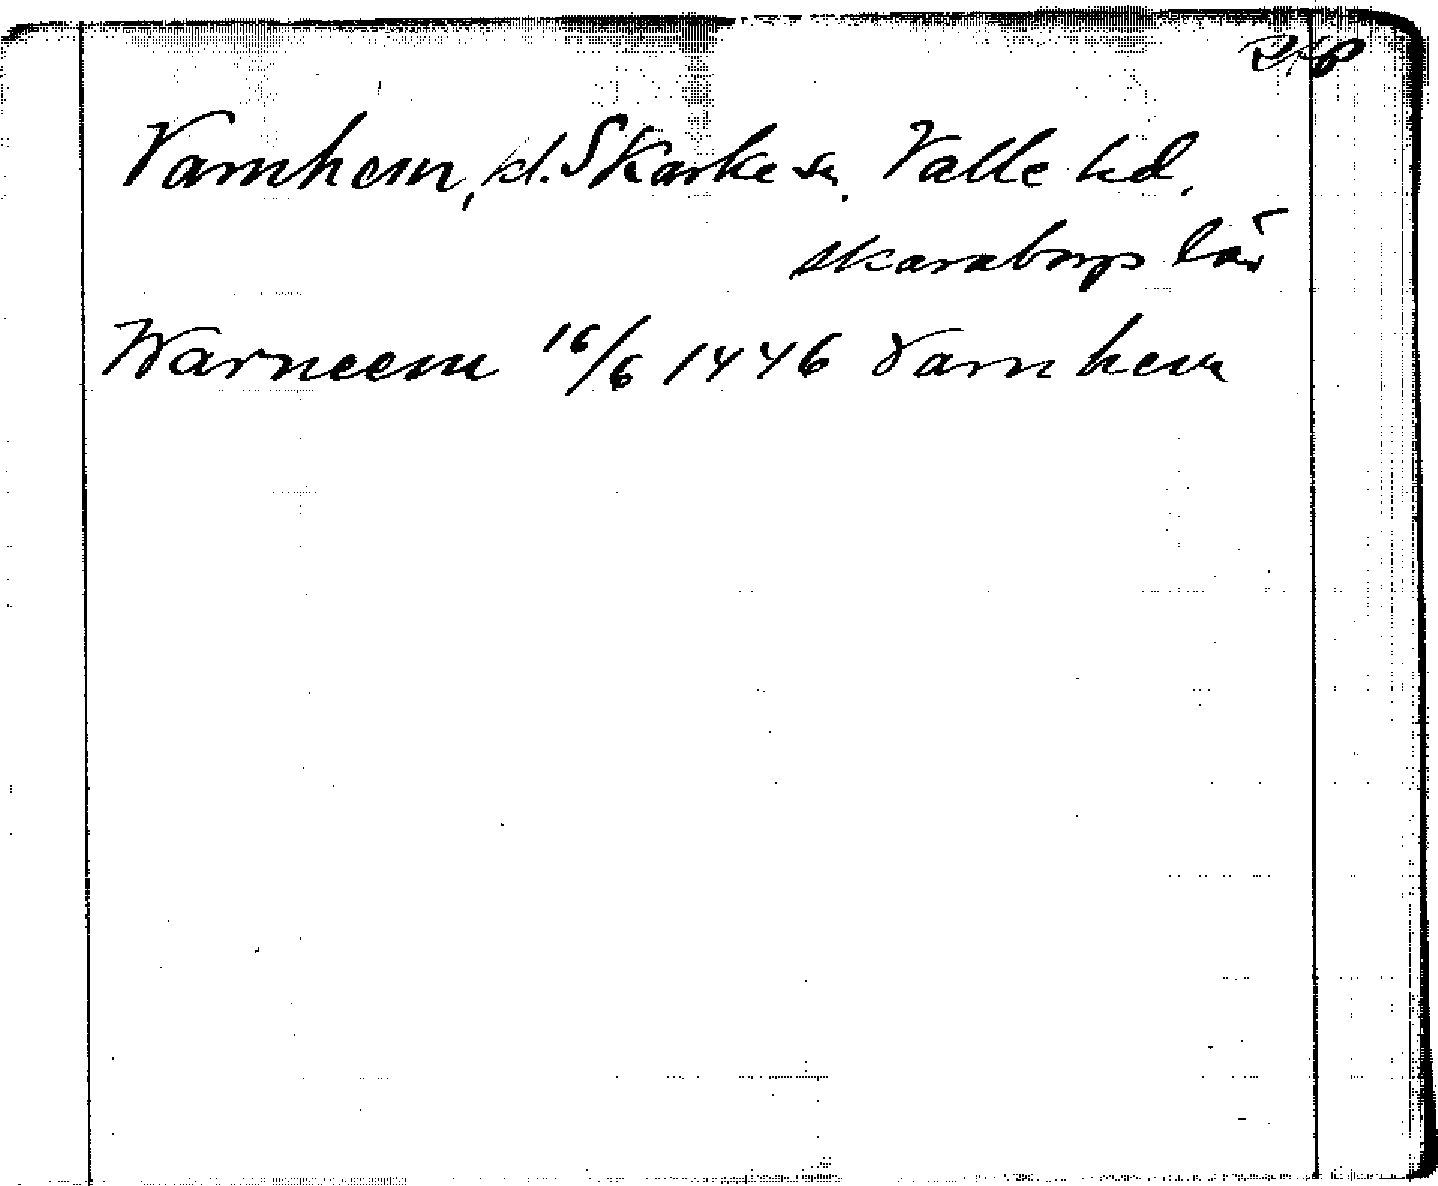 RAP
Varnhem, kl. Skarke sn. Valle hd.
Skaraborgs län
Warneem 16/6 1446 Varnhem